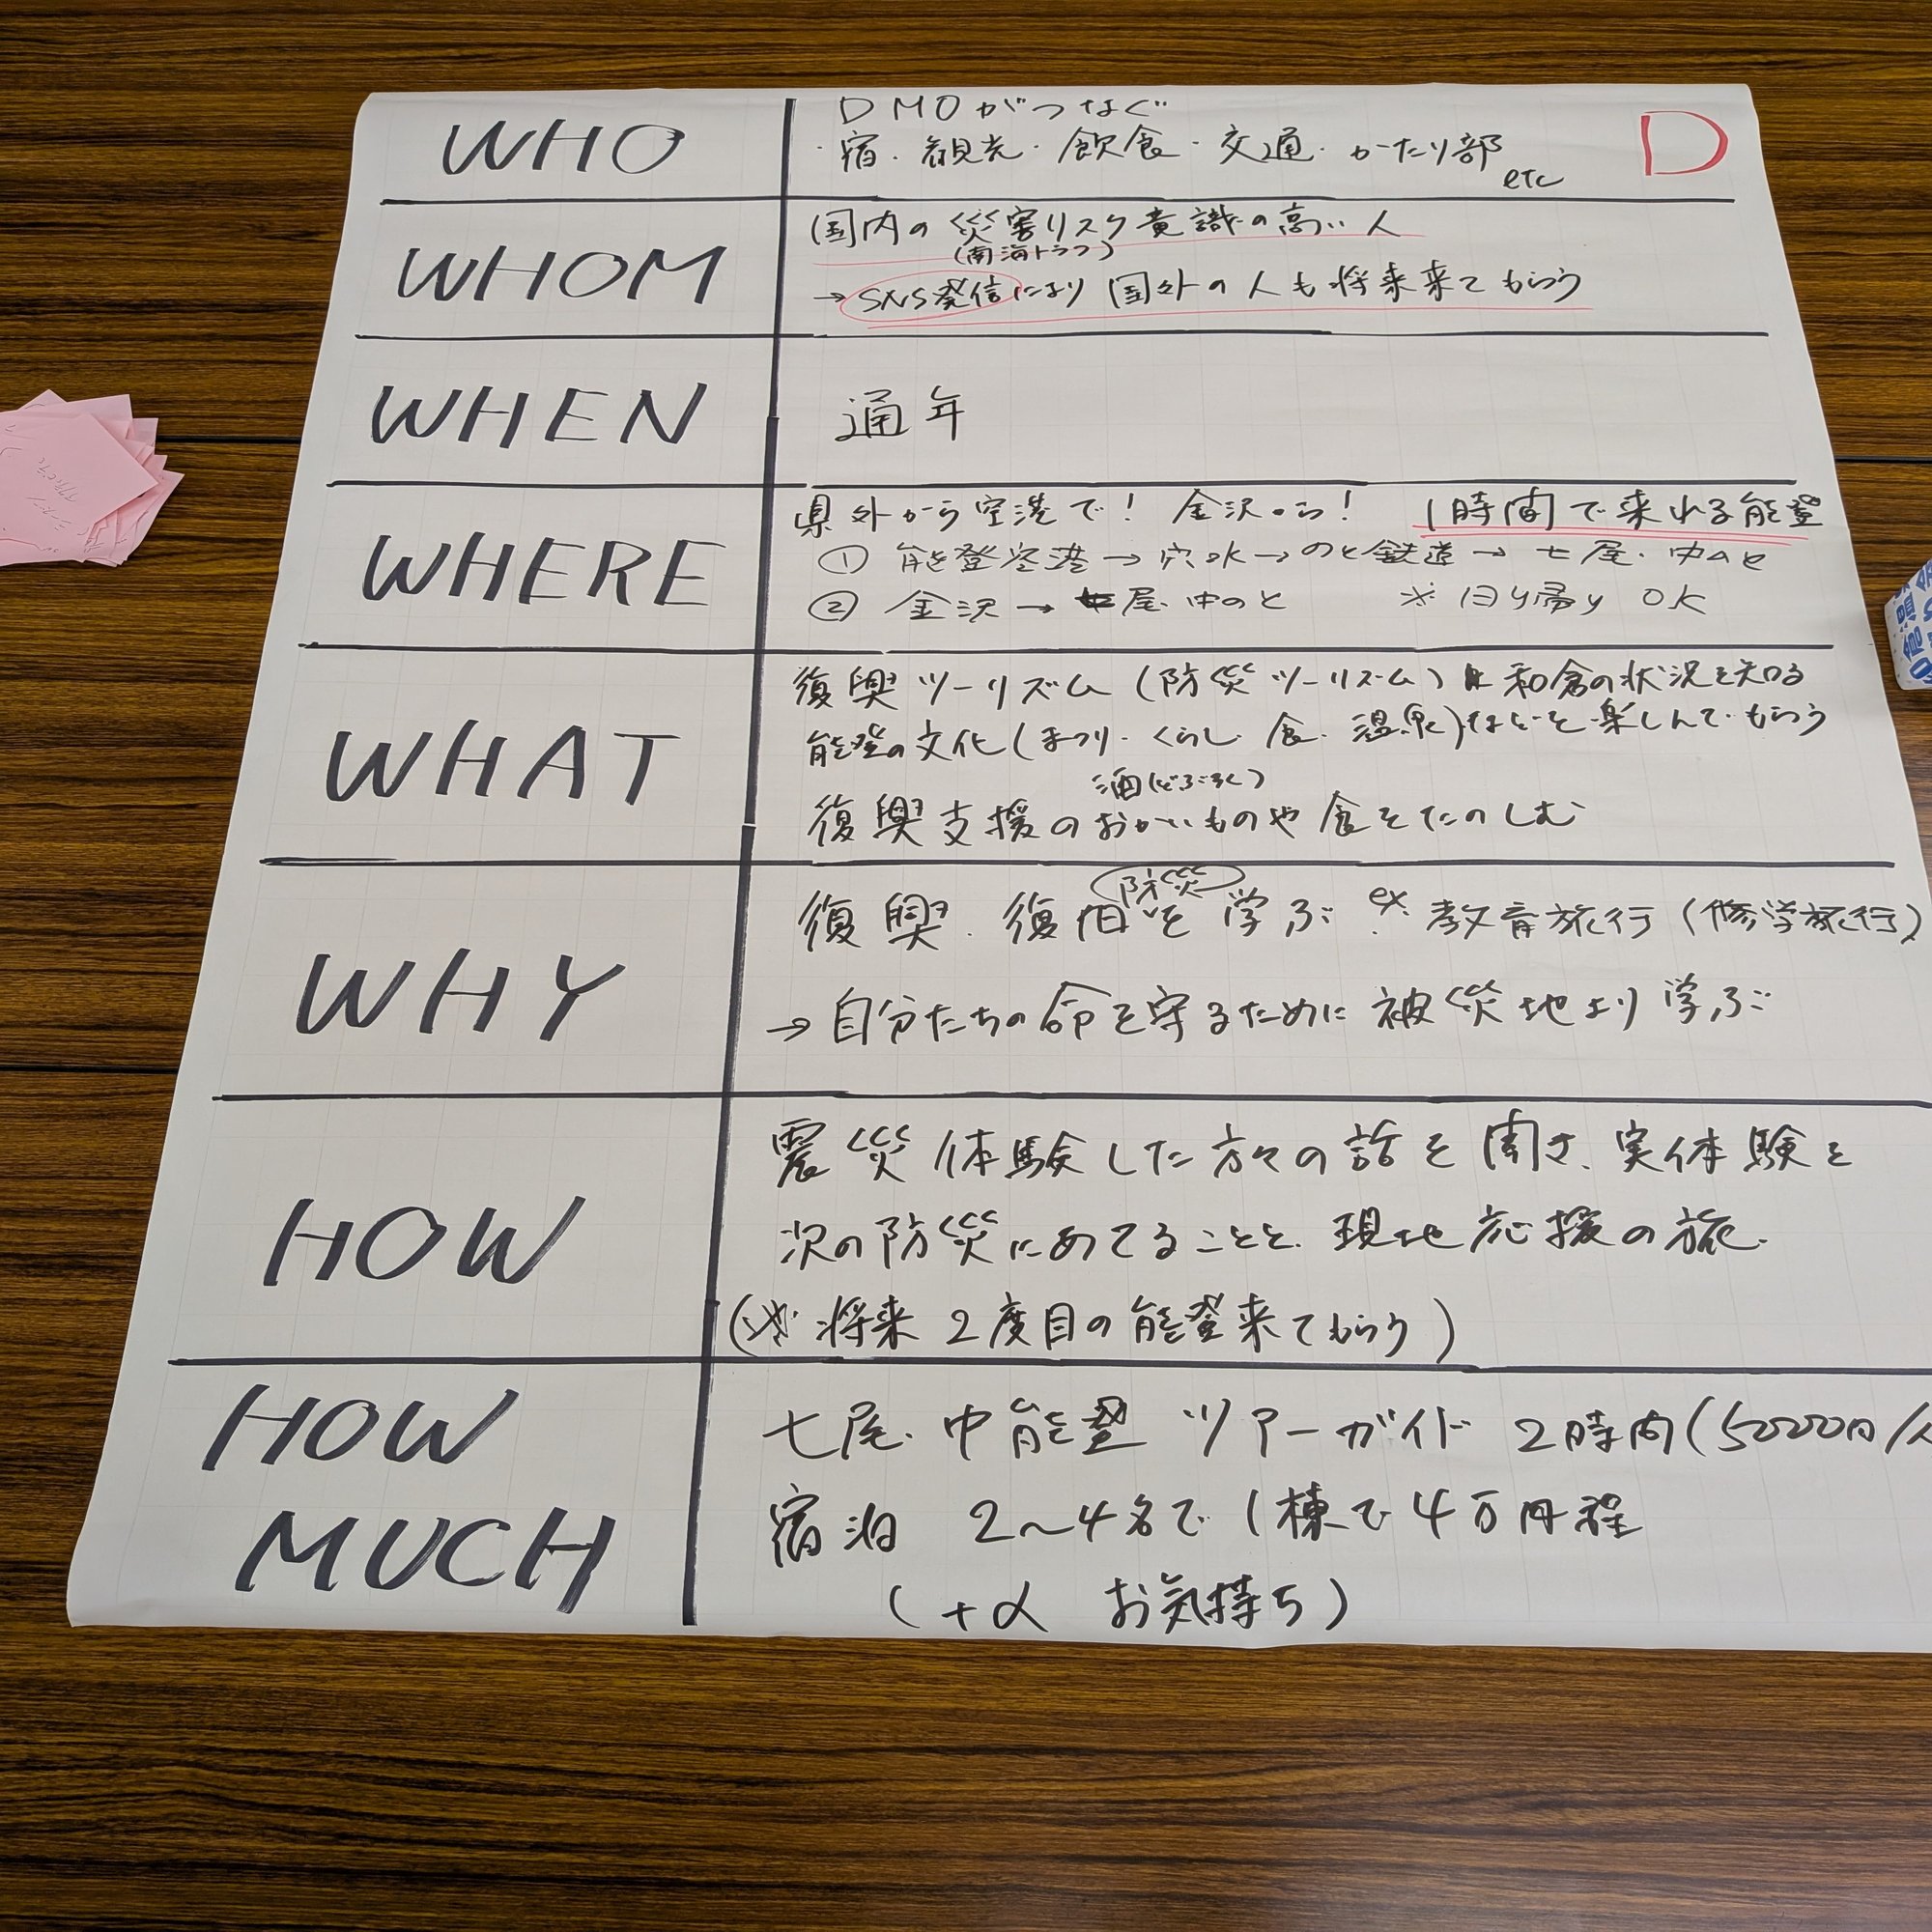 D
WHO
DMOがつなぐ
・宿・観光・飲食・交通・かたり部
etc
WHOM
国内の災害リスク意識の高い人
(南海トラフ)
→SNS発信により国外の人も将来来てもらう
WHEN
通年
WHERE
県外から空港で! 金沢から! 1時間で来れる能登
① 能登空港→穴水→のと鉄道→七尾・中のと
② 金沢→七尾・中のと ※日帰りOK
WHAT
復興ツーリズム(防災ツーリズム) 和倉の状況を知る
能登の文化(まつり・くらし・食・温泉)などを楽しんでもらう
酒(どぶろく)
復興支援のおかいものや食をたのしむ
WHY
防災
復興・復旧を学ぶ ex. 教育旅行(修学旅行)
→自分たちの命を守るために被災地より学ぶ
HOW
震災体験した方々の話を聞き、実体験を
次の防災にあてることと、現地応援の旅.
(※将来2度目の能登来てもらう)
HOW
MUCH
七尾・中能登 ツアーガイド 2時間(5000円/人
宿泊 2〜4名で1棟で4万円程
(+α お気持ち)